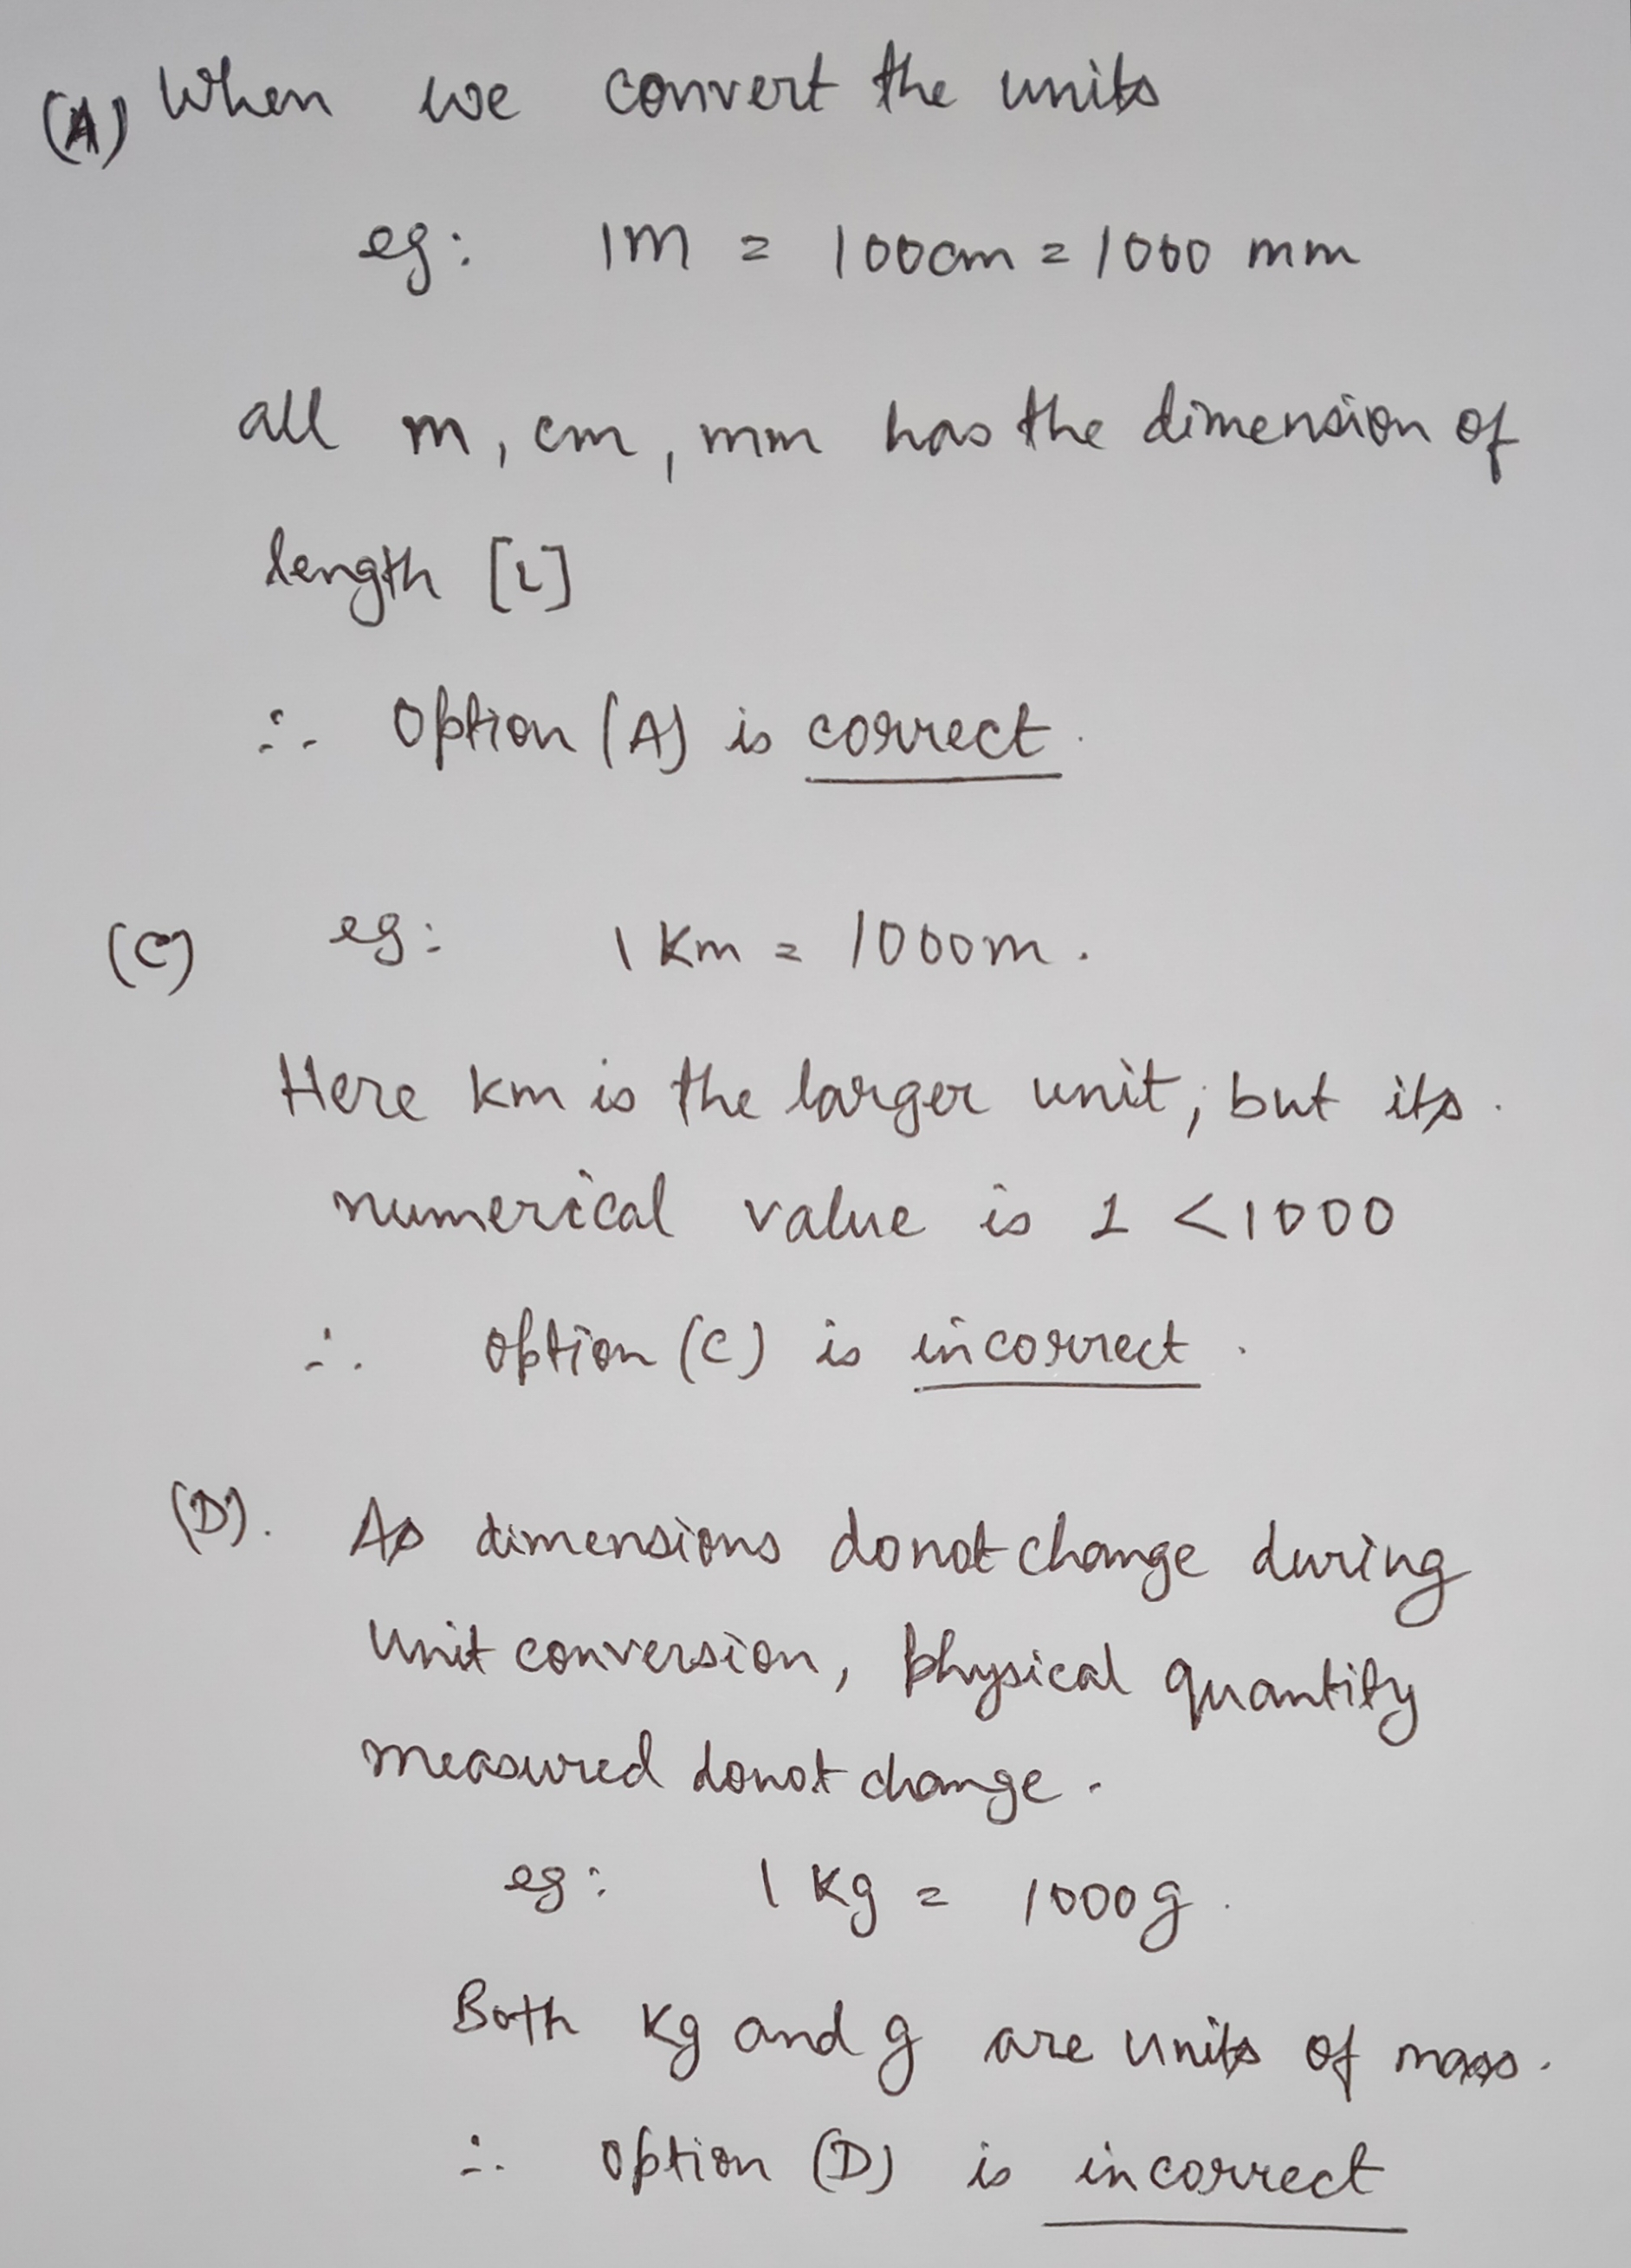 (A) When we convert the units
eg: 1m = 100cm = 1000 mm
all m, cm, mm has the dimension of
length [L]
∴ Option (A) is correct.
(C) eg: 1 Km = 1000m.
Here km is the larger unit, but its
numerical value is 1 < 1000
∴ option (C) is incorrect.
(D). As dimensions donot change during
unit conversion, physical quantity
measured donot change.
eg: 1 Kg = 1000g.
Both Kg and g are units of mass.
∴ option (D) is incorrect